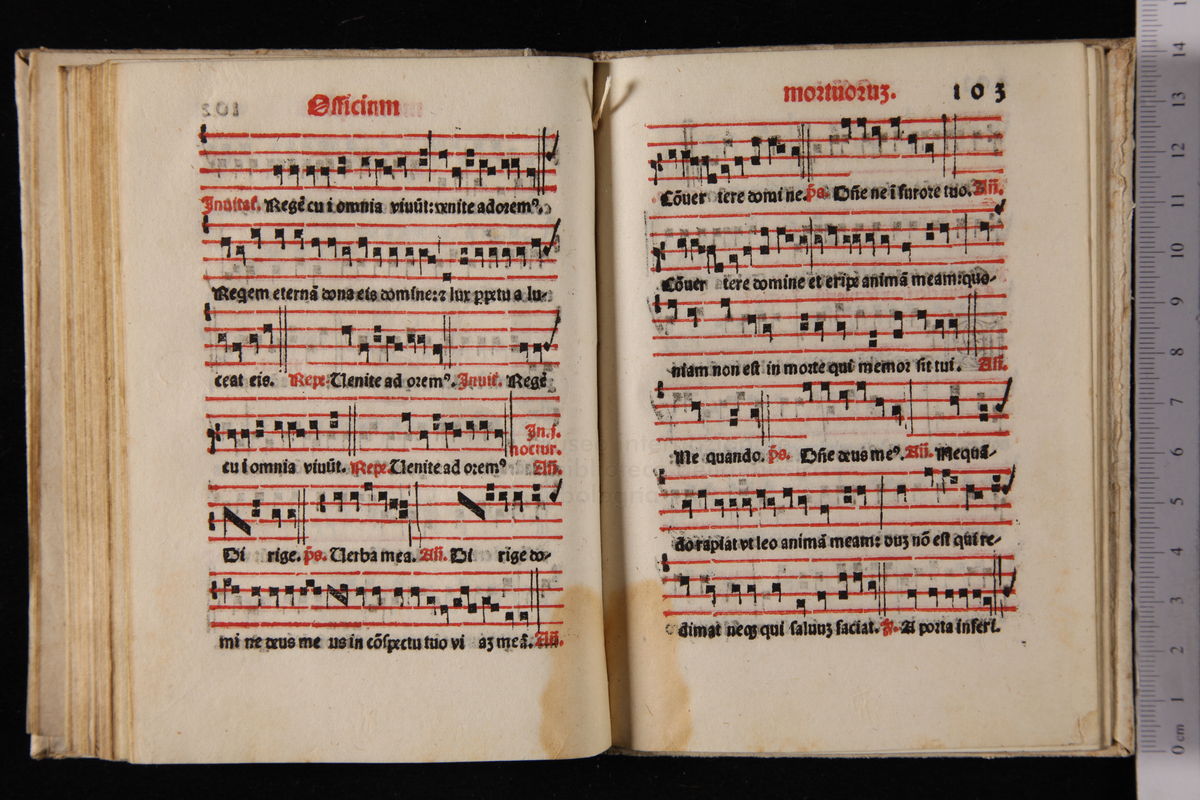 Officium
Inuitat. Regē cui omnia viuūt: venite adoremꝰ.
Regem eternā dona eis domine: ⁊ lux ꝑpetua lu-
ceat eis. Repe. Uenite ad oremꝰ. Inuit. Regē
In .j.
noctur.
cui omnia viuūt. Repe. Uenite ad oremꝰ Añ.
Di rige. p̄s. Uerba mea. Añ. Di rige do-
mi ne deus me us in cōspectu tuo vi aʒ meā. Añ.
mortuoruʒ. 103
Cōuer tere domi ne. p̄s. Dñe ne ī furore tuo. Añ.
Cōuer tere domine et eripe animā meam: quo-
niam non est in morte qui memor sit tui. Añ.
Ne quando. p̄s. Dñe deus meꝰ. Añ. Nequā-
do rapiat vt leo animā meam: duʒ nō est qui re-
dimat neqʒ qui saluuʒ faciat. ℣. A porta inferi.
0 cm 1 2 3 4 5 6 7 8 9 10 11 12 13 14